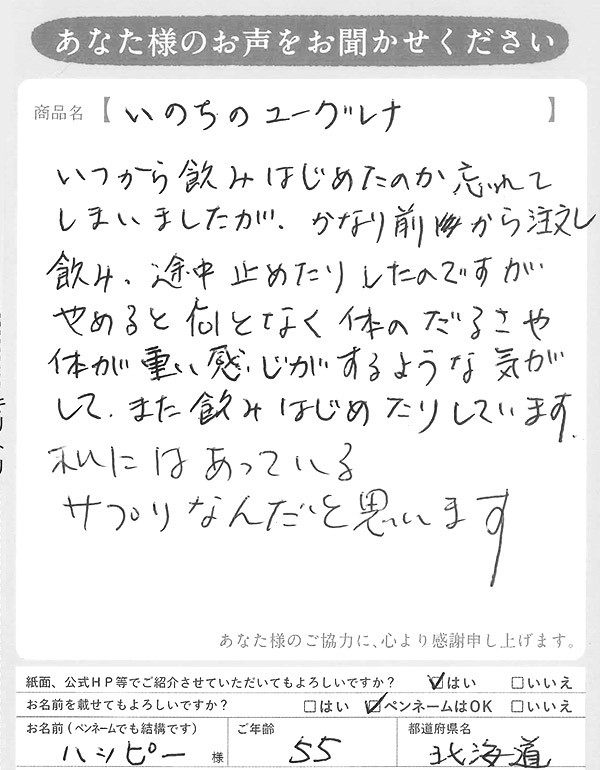 あなた様のお声をお聞かせください
商品名【いのちのユーグレナ】
いつから飲みはじめたのか忘れて
しまいましたが、かなり前から注文し
飲み、途中止めたりしたのですが
やめると何となく体のだるさや
体が重い感じがするような気が
して、また飲みはじめたりしています。
私にはあっている
サプリなんだと思います
あなた様のご協力に、心より感謝申し上げます。
紙面、公式HP等でご紹介させていただいてもよろしいですか? ☑はい □いいえ
お名前を載せてもよろしいですか? □はい ☑ペンネームはOK □いいえ
お名前(ペンネームでも結構です) ご年齢 都道府県名
ハッピー 様 55 北海道